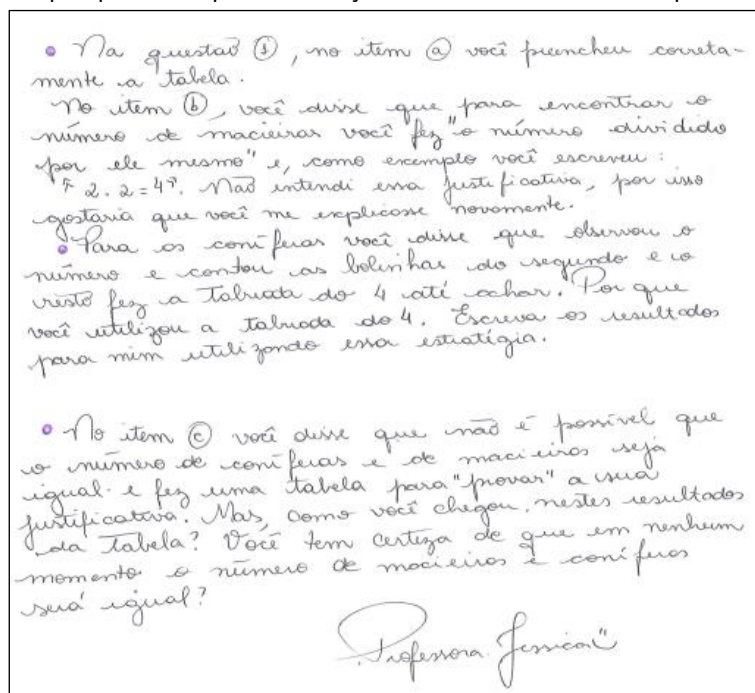 • Na questão ①, no item ⓐ você preencheu correta-
mente a tabela.
No item ⓑ, você disse que para encontrar o
número de macieiras você fez "o número dividido
por ele mesmo" e, como exemplo você escreveu:
"2.2=4". Não entendi essa justificativa, por isso
gostaria que você me explicasse novamente.
• Para as coníferas você disse que observou o
número e contou as bolinhas do segundo e o
resto fez a tabuada do 4 até achar. Por que
você utilizou a tabuada do 4. Escreva os resultados
para mim utilizando essa estratégia.
• No item ⓒ você disse que não é possível que
o número de coníferas e de macieiras seja
igual e fez uma tabela para "provar" a sua
justificativa. Mas, como você chegou nestes resultados
da tabela? Você tem certeza de que em nenhum
momento o número de macieiras e coníferas
será igual?
Professora Jessica